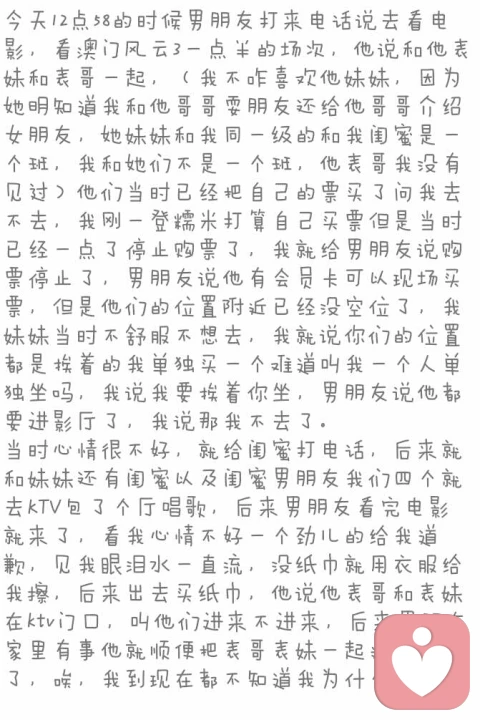 今天12点58的时候男朋友打来电话说去看电
影，看澳门风云3一点半的场次，他说和他表
妹和表哥一起，（我不咋喜欢他妹妹，因为
她明知道我和他哥哥耍朋友还给他哥哥介绍
女朋友，她妹妹和我同一级的和我闺蜜是一
个班，我和她们不是一个班，他表哥我没有
见过）他们当时已经把自己的票买了问我去
不去，我刚一登糯米打算自己买票但是当时
已经一点了停止购票了，我就给男朋友说购
票停止了，男朋友说他有会员卡可以现场买
票，但是他们的位置附近已经没空位了，我
妹妹当时不舒服不想去，我就说你们的位置
都是挨着的我单独买一个难道叫我一个人单
独坐吗，我说我要挨着你坐，男朋友说他都
要进影厅了，我说那我不去了。
当时心情很不好，就给闺蜜打电话，后来就
和妹妹还有闺蜜以及闺蜜男朋友我们四个就
去KTV包了个厅唱歌，后来男朋友看完电影
就来了，看我心情不好一个劲儿的给我道
歉，见我眼泪水一直流，没纸巾就用衣服给
我擦，后来出去买纸巾，他说他表哥和表妹
在ktv门口，叫他们进来不进来，后来
家里有事他就顺便把表哥表妹一起
了，唉，我到现在都不知道我为什